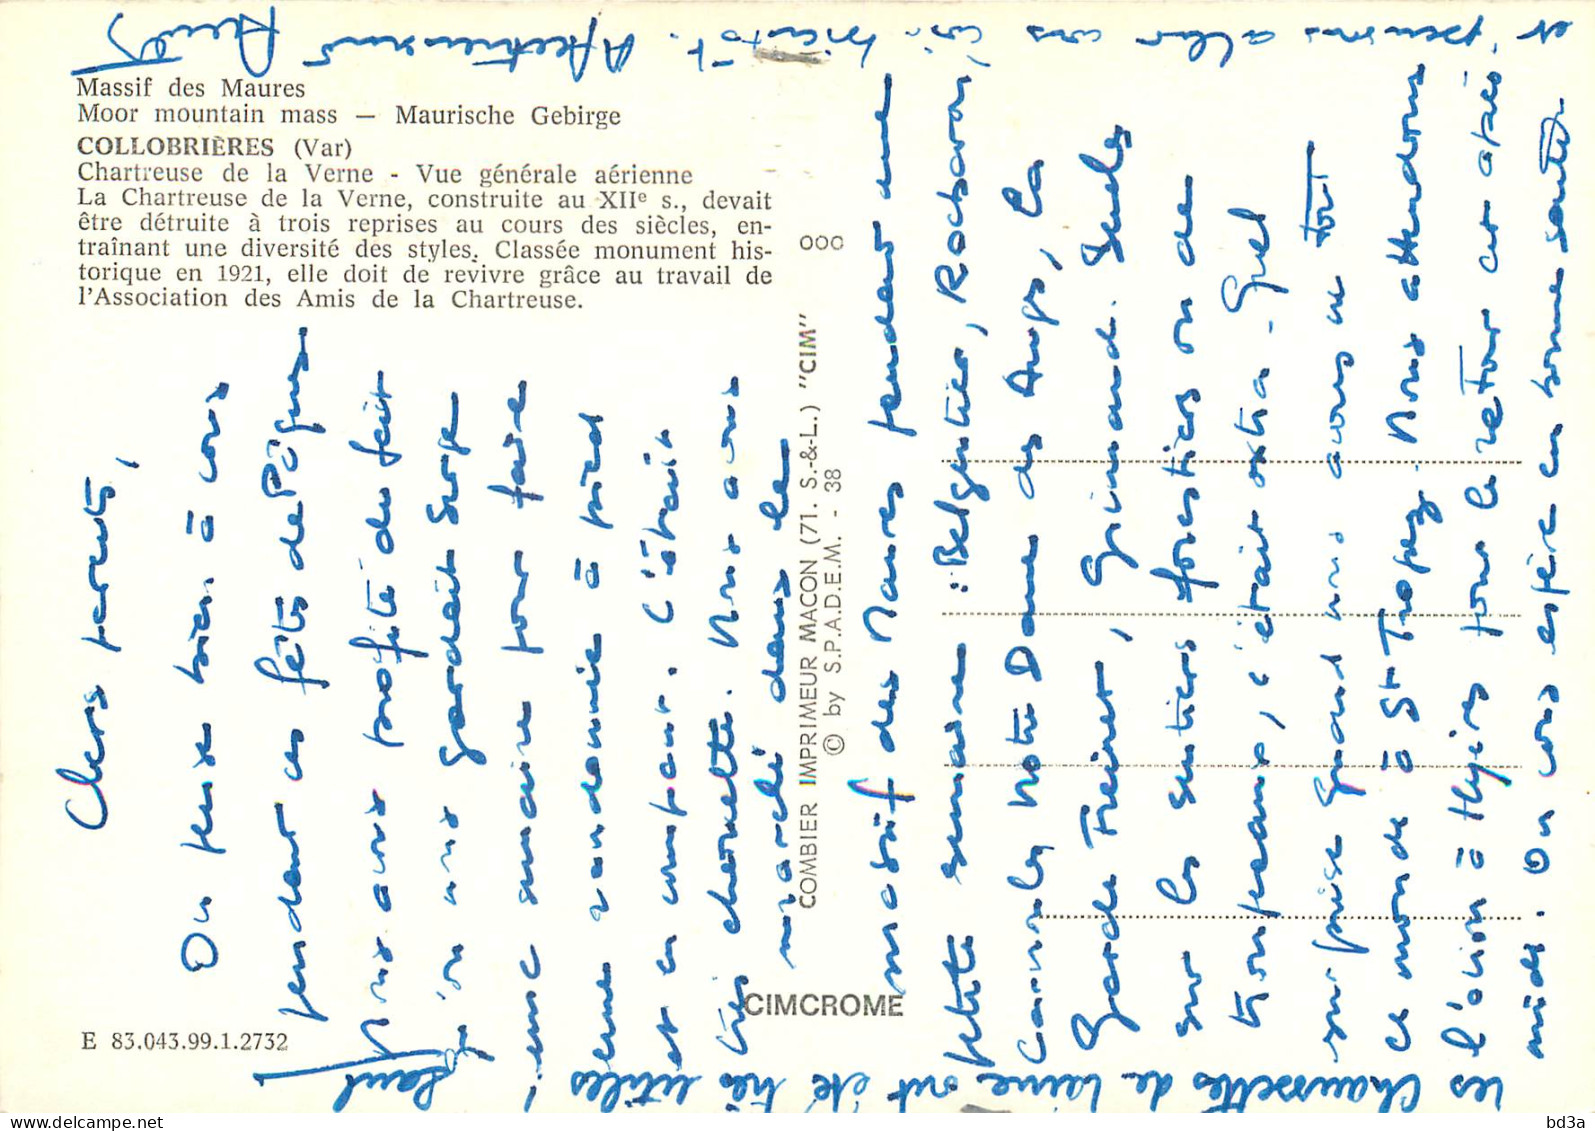 Massif des Maures
Moor mountain mass — Maurische Gebirge
COLLOBRIÈRES (Var)
Chartreuse de la Verne - Vue générale aérienne
La Chartreuse de la Verne, construite au XIIe s., devait
être détruite à trois reprises au cours des siècles, en-
traînant une diversité des styles. Classée monument his-
torique en 1921, elle doit de revivre grâce au travail de
l'Association des Amis de la Chartreuse.
Chers parents,
On pense bien à vous
pendant ces fêtes de Pâques
Nous avons profité du fait
qu'on nous gardait Serge
une semaine pour faire
une randonnée à pied
et en campant. C'était
très chouette. Nous avons
marché dans le
massif des Maures pendant une
petite semaine : Belgentier, Rocbaron,
Carnoules, Notre Dame des Anges, La
Garde Freinet, Grimaud. Seules
sur les sentiers forestiers ou de
troupeaux, c'était extra - Quel
surprise quand nous avons vu tout
ce monde à St Tropez. Nous attendons
l'avion à Hyères pour le retour cet après
midi. On vous espère en bonne santé
et pensons aller vous voir bientôt. Affectueusement
Les chaussettes de laine ont été très utiles
000
COMBIER IMPRIMEUR MACON (71. S.-&-L.) "CIM"
© by S.P.A.D.E.M. - 38
CIMCROME
E 83.043.99.1.2732
bd3a